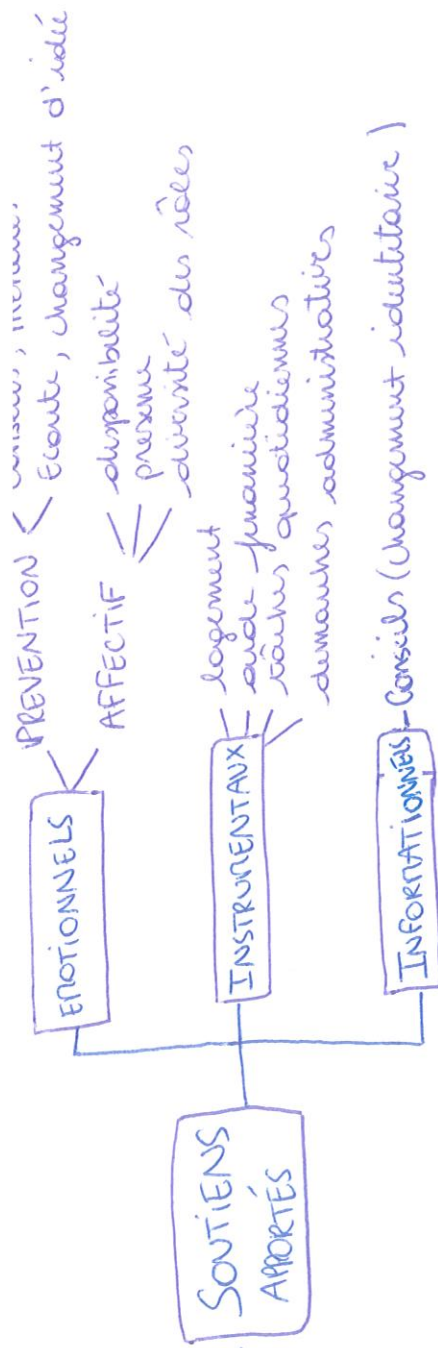 SOUTIENS
APPORTÉS
EMOTIONNELS
PREVENTION
Ecoute, changement d'idée
AFFECTIF
disponibilité
présence
diversité des rôles
INSTRUMENTAUX
logement
aide financière
tâches quotidiennes
demarches administratives
INFORMATIONNELS - Conseils (changement identitaire)